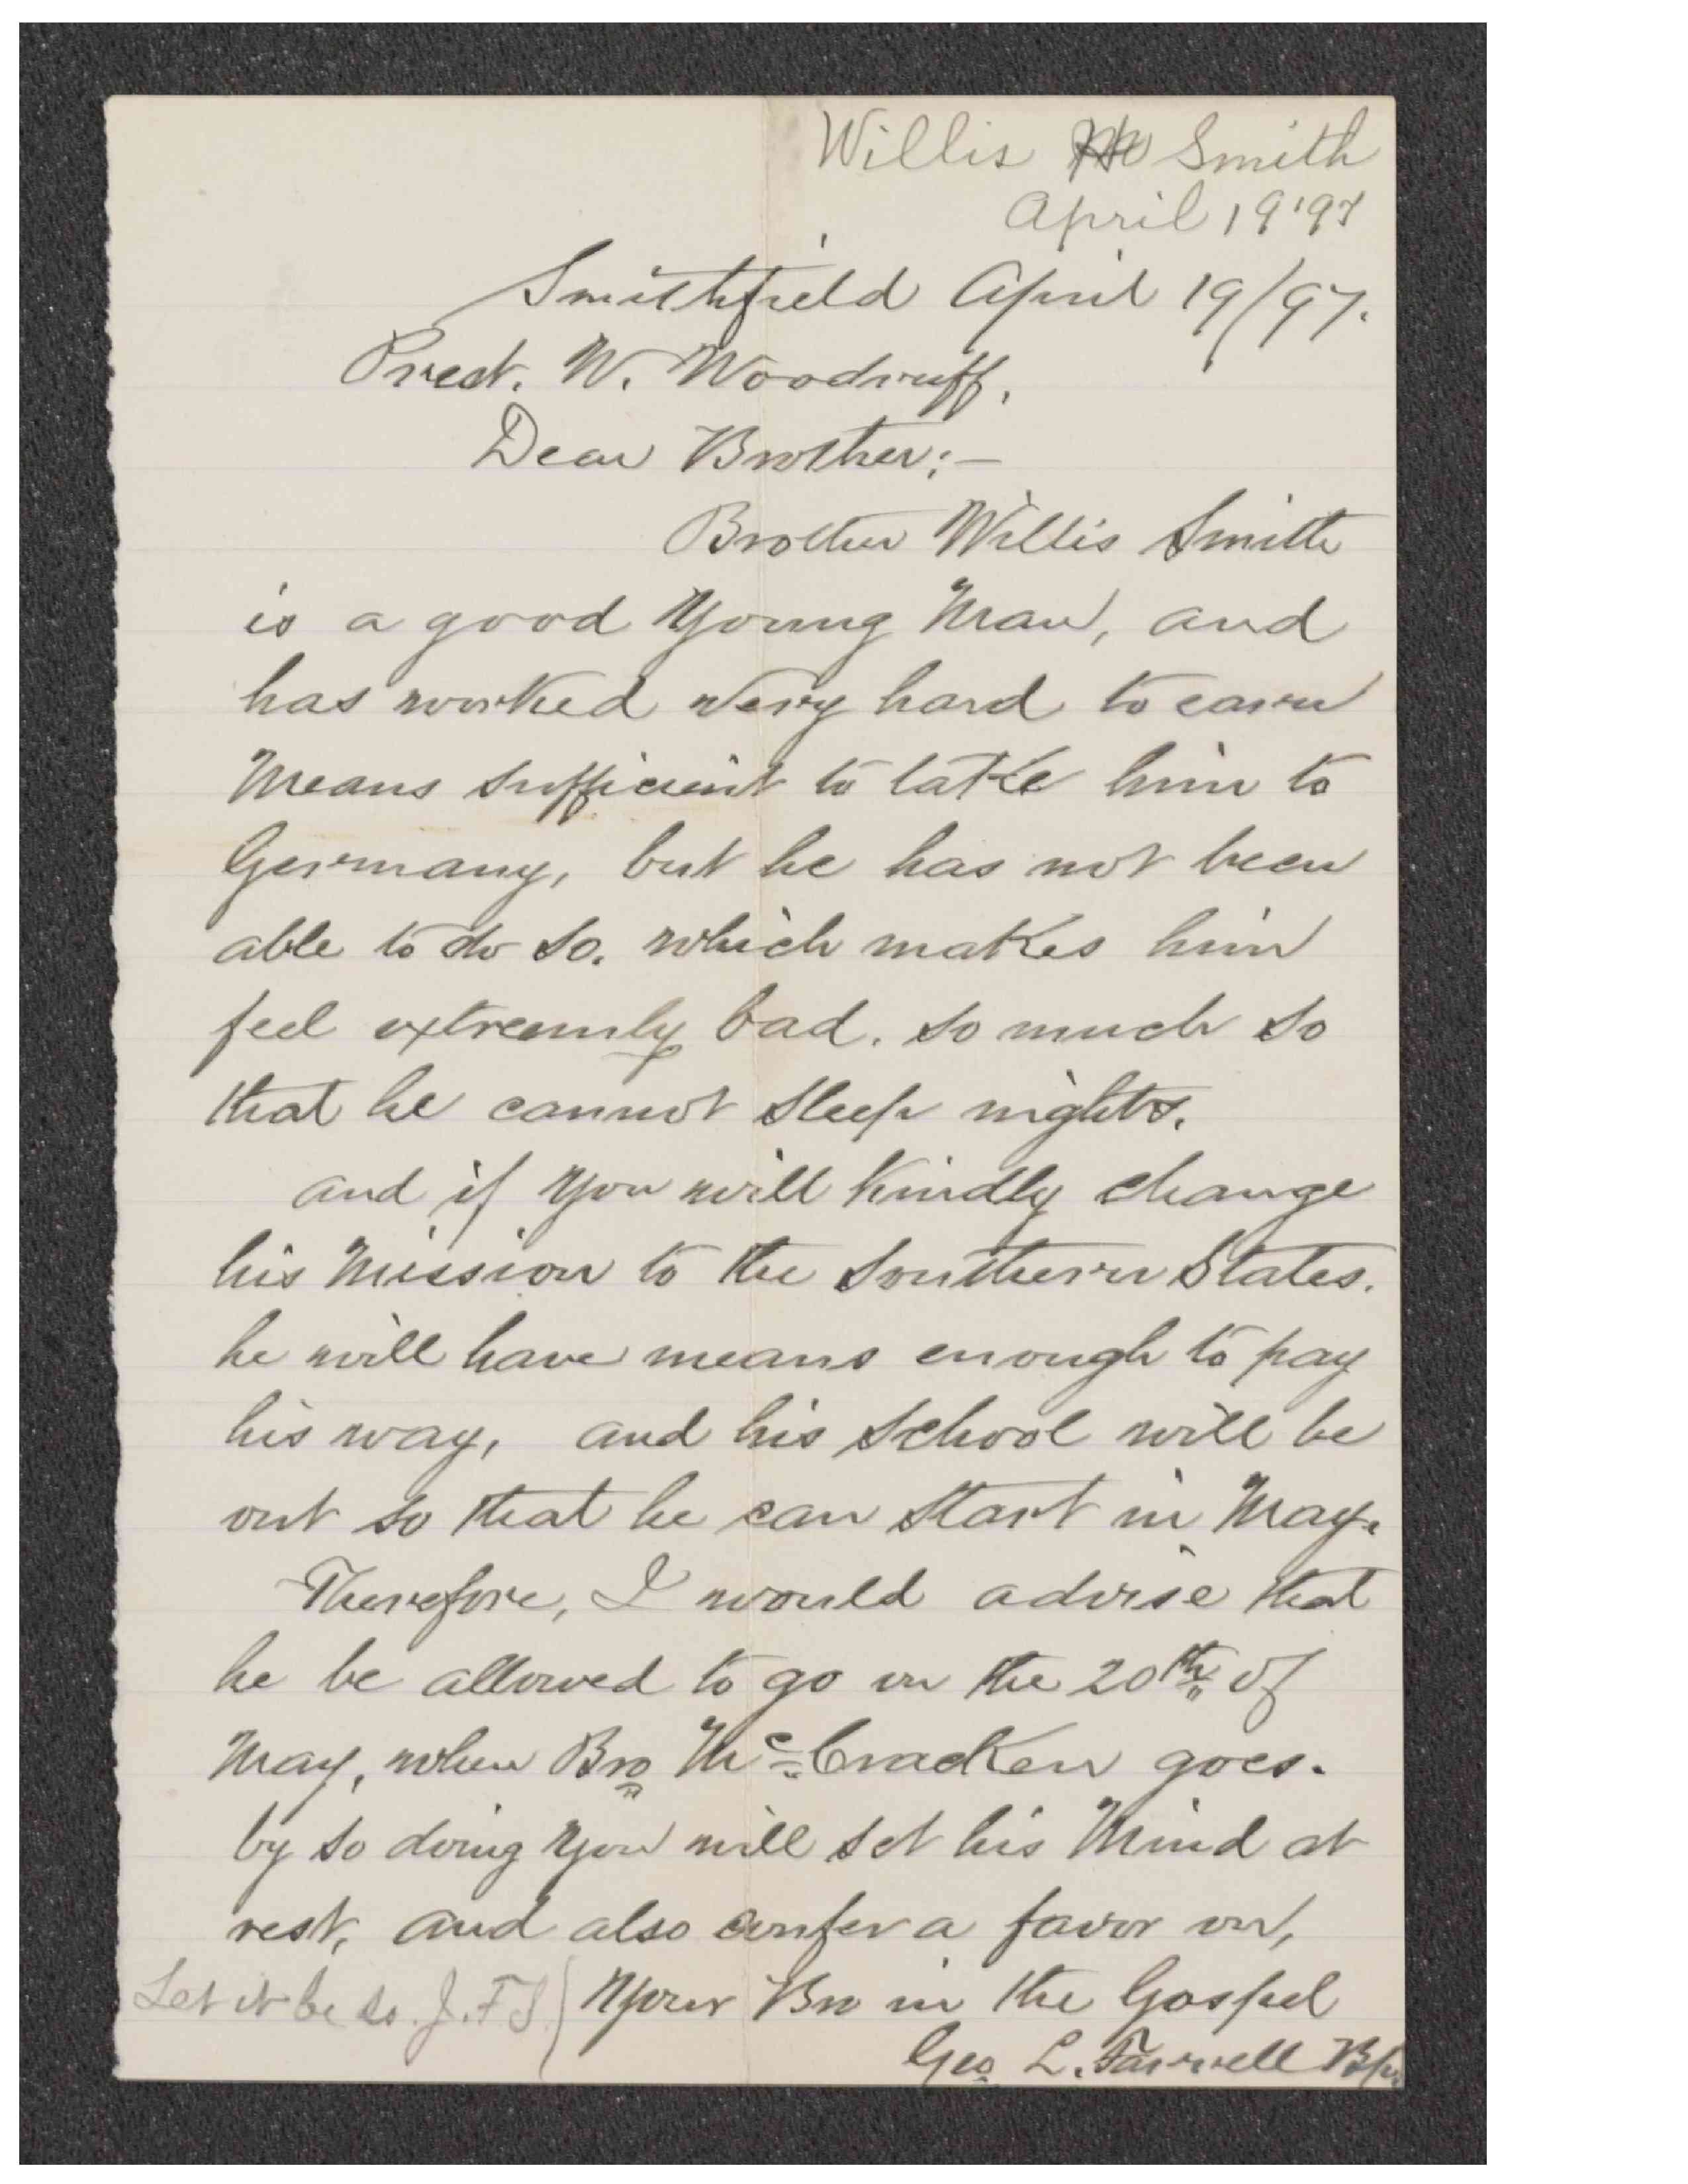 Willis Smith
April 19 '97
Smithfield April 19/97.
Prest. W. Woodruff.
Dear Brother:—
Brother Willis Smith
is a good Young Man, and
has worked very hard to earn
Means sufficient to take him to
Germany, but he has not been
able to do so. which makes him
feel extremly bad. so much so
that he cannot sleep nights.
and if you will Kindly change
his Mission to the Southern States.
he will have means enough to pay
his way, and his School will be
out so that he can start in May.
Therefore, I would advise that
he be allowed to go on the 20th of
May, when Bro McCracken goes.
by so doing you will set his Mind at
rest, and also confer a favor on,
Let it be so. J. F. S. } Your Bro in the Gospel
Geo. L. Farrell Bp